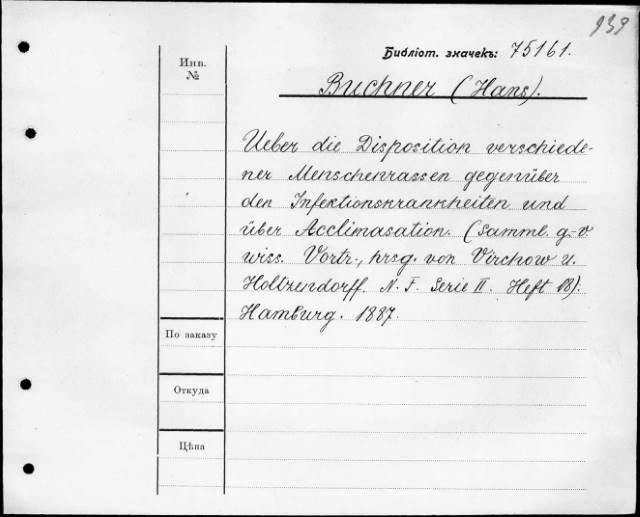 939
Библіот. значекъ: 75161.
Инв.
№
Buchner (Hans).
Ueber die Disposition verschiede-
ner Menschenrassen gegenüber
den Infektionskrankheiten und
über Acclimasation. (Samml. g-v.
wiss. Vortr., hrsg. von Virchow u.
Holtzendorff. N. F. Serie II. Heft 18).
Hamburg. 1887.
По заказу
Откуда
Цѣна